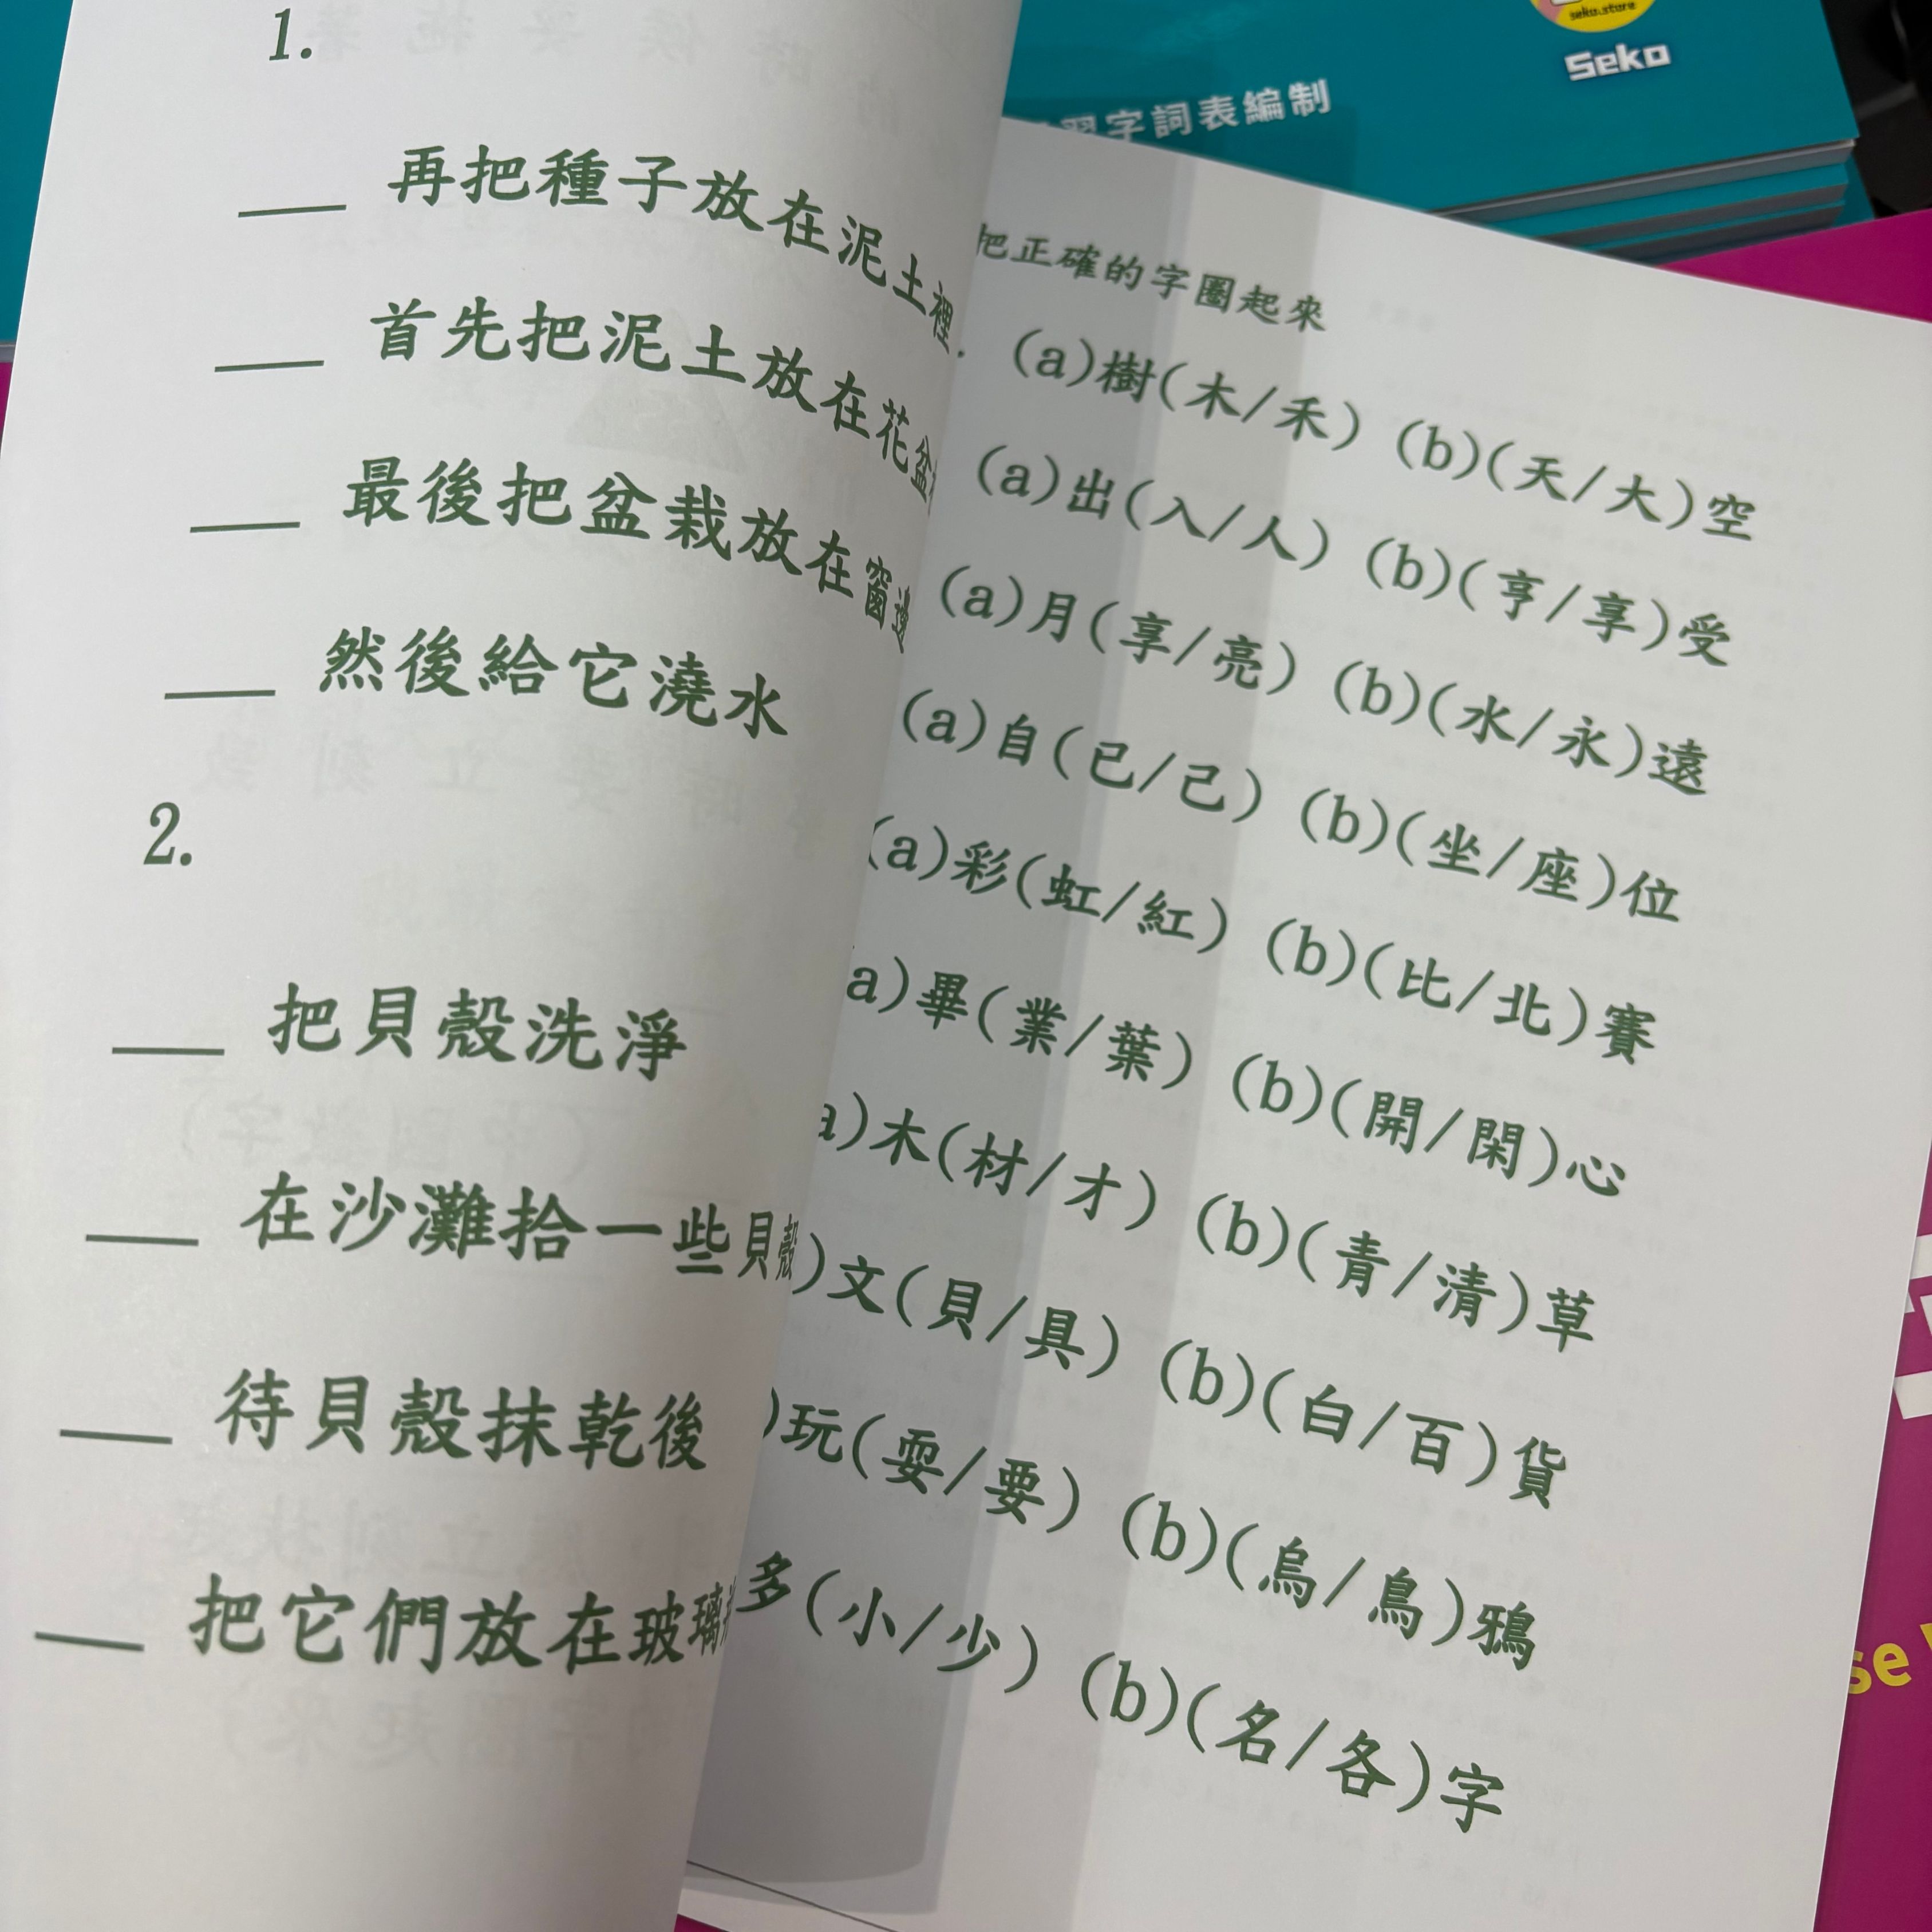 1.
再把種子放在泥土裡
首先把泥土放在花盆
最後把盆栽放在窗邊
然後給它澆水
2.
把貝殼洗淨
在沙灘拾一些貝殼
待貝殼抹乾後
把它們放在玻璃
seko.store
Seko
習字詞表編制
把正確的字圈起來
(a)樹(木/禾) (b)(天/大)空
(a)出(入/人) (b)(亨/享)受
(a)月(享/亮) (b)(水/永)遠
(a)自(已/己) (b)(坐/座)位
(a)彩(虹/紅) (b)(比/北)賽
a)畢(業/葉) (b)(開/閑)心
a)木(材/才) (b)(青/清)草
)文(貝/具) (b)(白/百)貨
)玩(耍/要) (b)(烏/鳥)鴉
多(小/少) (b)(名/各)字
se